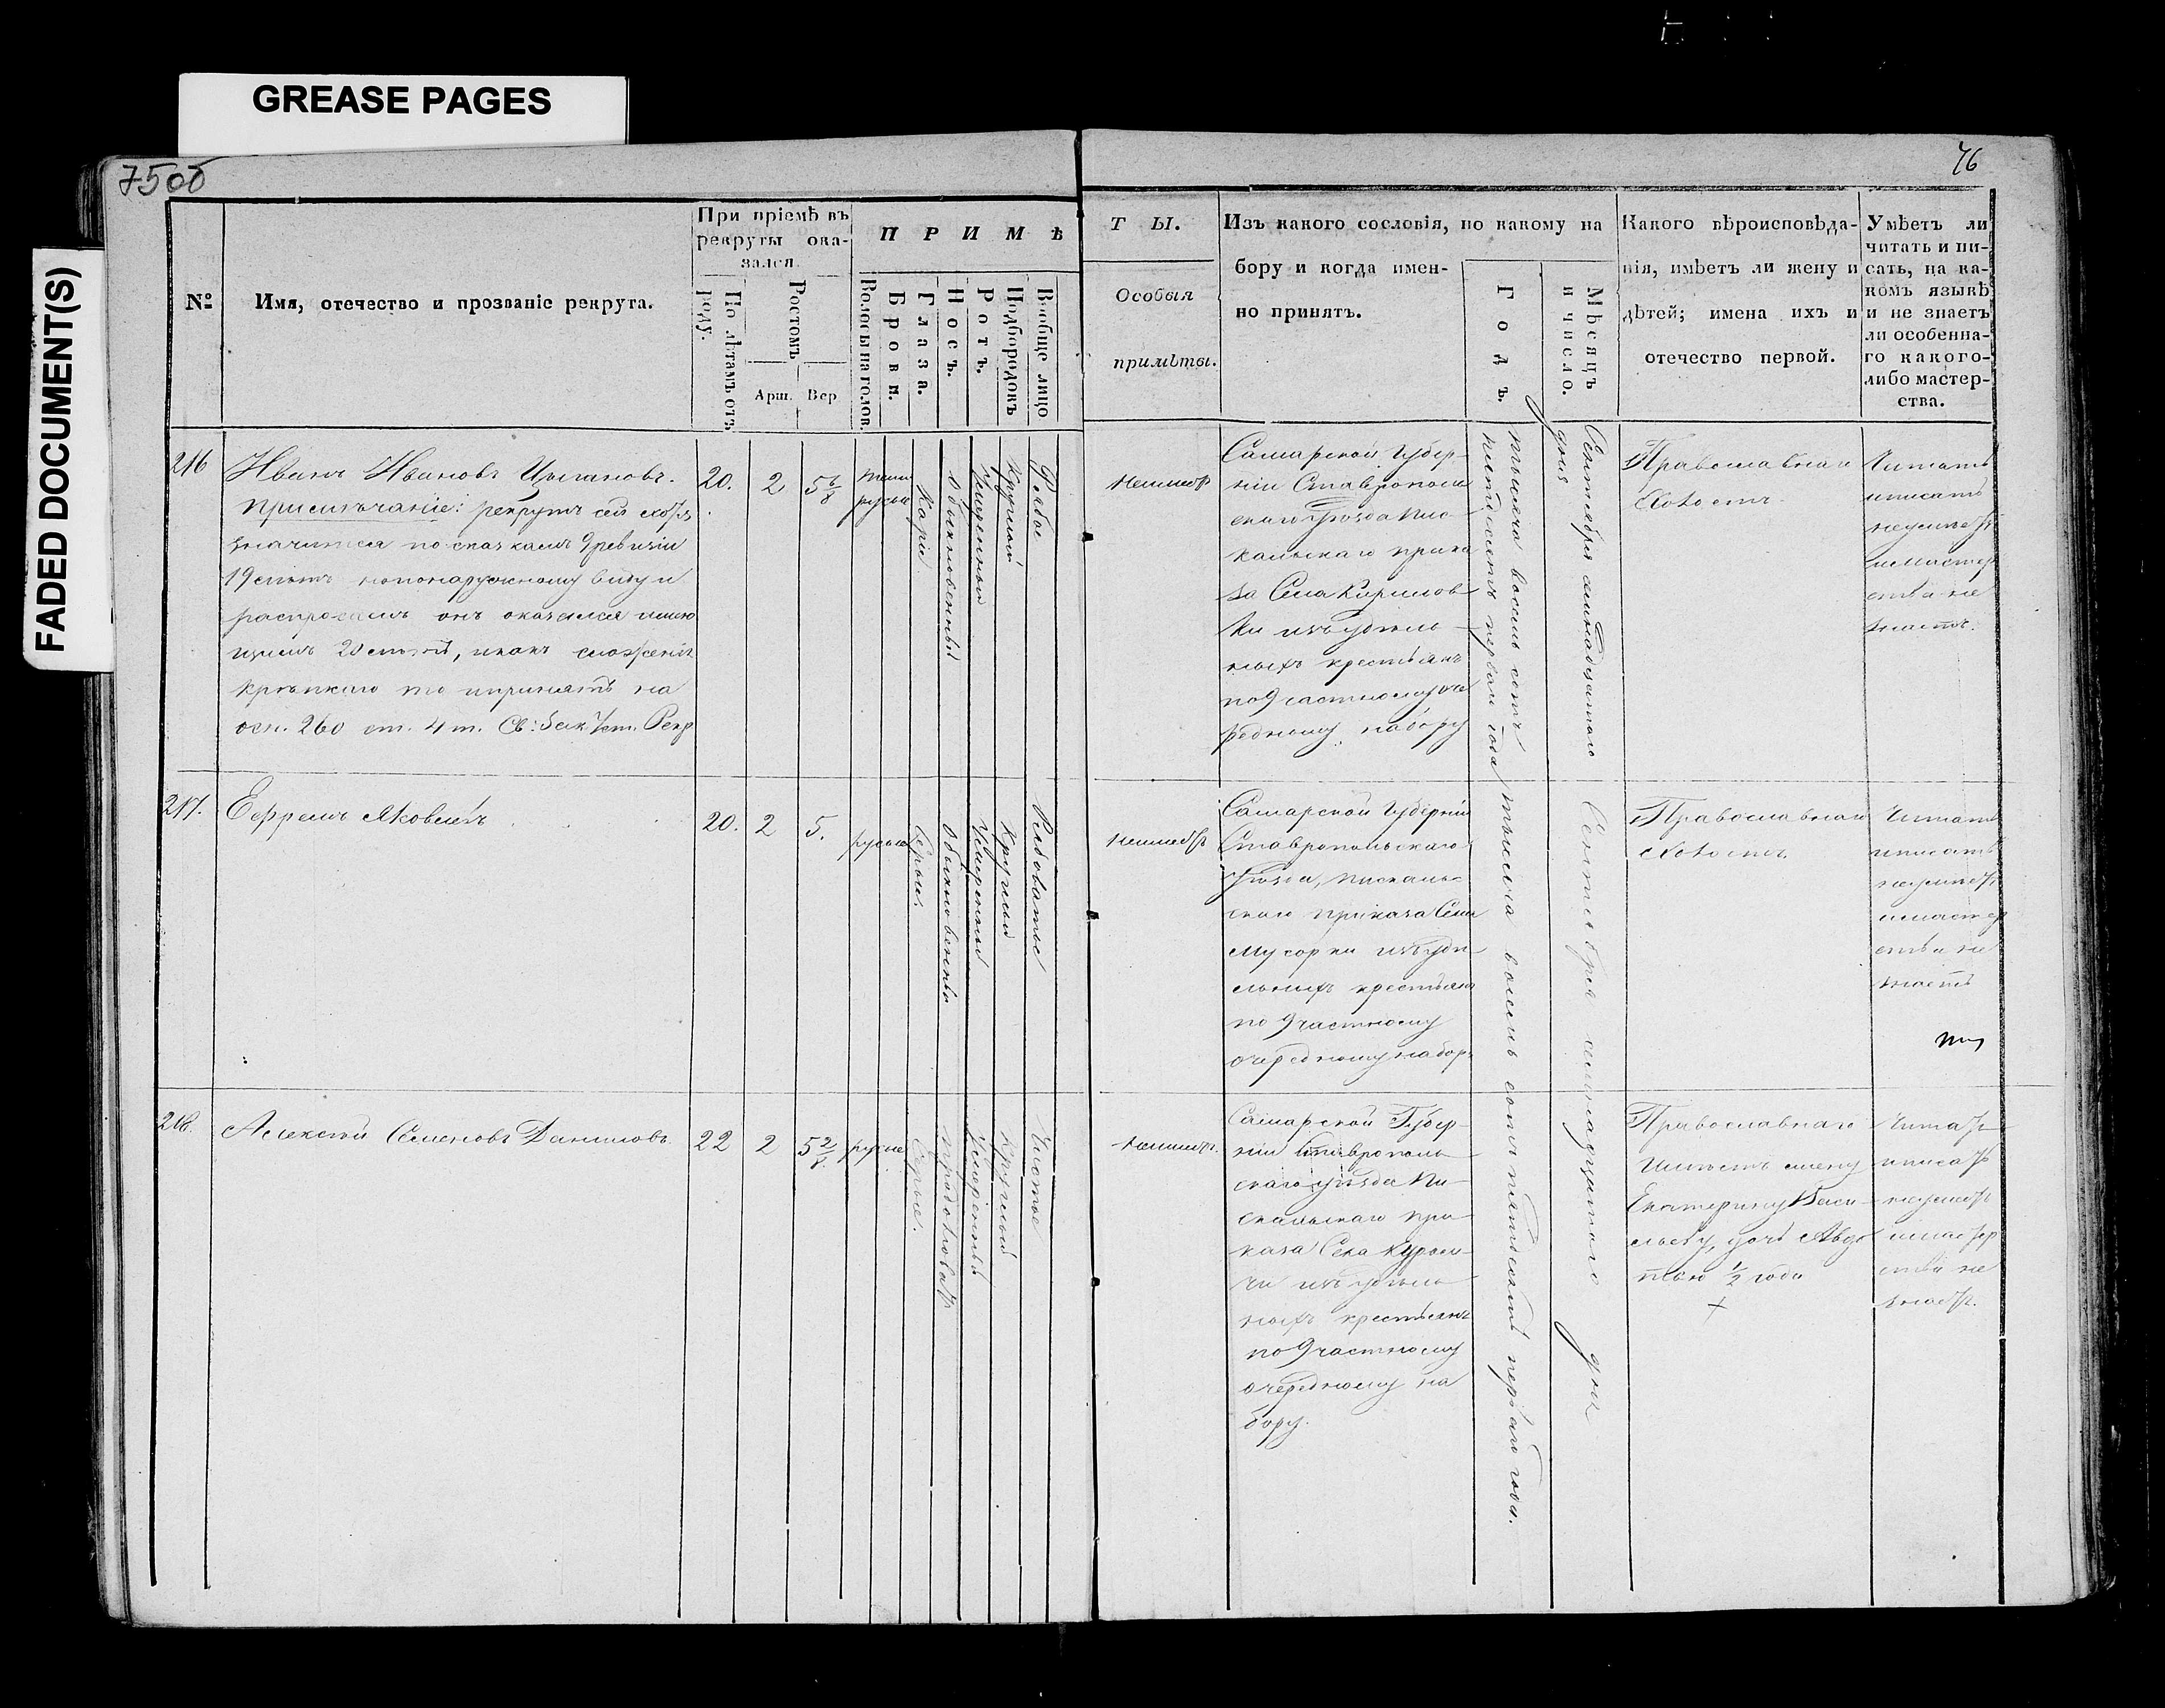 GREASE PAGES
FADED DOCUMENT(S)
75об
76
№
Имя, отечество и прозваніе рекрута.
При пріемѣ въ
рекруты ока-
зался
По лѣтамъ отъ
роду.
Ростомъ
Арш.
Вер
П Р И М Ѣ
Волосы на голов.
Брови.
Глаза.
Носъ.
Ротъ.
Подбородокъ
Вообще лицо
Т Ы.
Особыя
примѣты.
Изъ какого сословія, по какому на
бору и когда имен-
но принятъ.
Годъ.
Мѣсяцъ
и число.
Какого вѣроисповѣда-
нія, имѣетъ ли жену и
дѣтей; имена ихъ и
отечество первой.
Умѣетъ ли
читать и пи-
сать, на ка-
комъ языкѣ
и не знаетъ
ли особенна-
го какого-
либо мастер-
ства.
216
Иванъ Ивановъ Цыгановъ.
Примѣчаніе: рекрутъ сей хотя
значится по сказкамъ 9 ревизіи
19 лѣтъ но по наружному виду и
распросамъ онъ оказался имею
щимъ 20 лѣтъ, и какъ сложенія
крѣпкаго то и принятъ на
осн. 260 ст. 4 т. Св: Зак. Уст. Рекр
20.
2
5 6/8
темно
русые
Каріе
Обыкновенный
Умеренный
Круглый
Рябое
неимѣетъ
Самарской Губер-
ніи Ставрополь
скаго Уѣзда Пис-
кальскаго прика
за Села Кирилов-
ки изъ удѣль-
ныхъ крестьянъ
по 9 частному оче
редному набору
тысяча восемь сотъ
пятдесятъ перваго года
Сентября семнадцатаго
дня
Православнаго
Холостъ
Читать
и писать
неумѣетъ
и мастер
ства не
знаетъ.
217.
Ефремъ Яковлевъ
20.
2
5.
русые
Серые.
Обыкновенный
Умеренный
Круглый
Рябоватое
неимеетъ
Самарской Губерніи
Ставропольскаго
Уѣзда, Пискаль-
скаго приказа Села
Мусорки изъ удѣ-
льныхъ крестьянъ
по 9 частному
очередному набору
Православнаго
Холостъ.
Читать
и писать
неумѣетъ
и мастер
ства не
знаетъ
218.
Алексѣй Семеновъ Даниловъ.
22
2
5 2/8
русые
Серые.
продолговатъ
Умеренный
Круглый
Чистое
неимеетъ.
Самарской Губер-
ніи Ставрополь-
скаго уѣзда Пи-
скальскаго при-
каза Села
изъ удѣль-
ныхъ крестьянъ
по 9 частному
очередному на
бору.
тысяча восемь сотъ пятьдесятъ перваго года.
Сентября семнадцатаго дня
Православнаго
Имѣетъ жену
Екатерину Васи-
льеву, дочь Авдо
тью 1/2 года
+
Читать
и писать
неумѣетъ
и мастер
ства не
знаетъ.